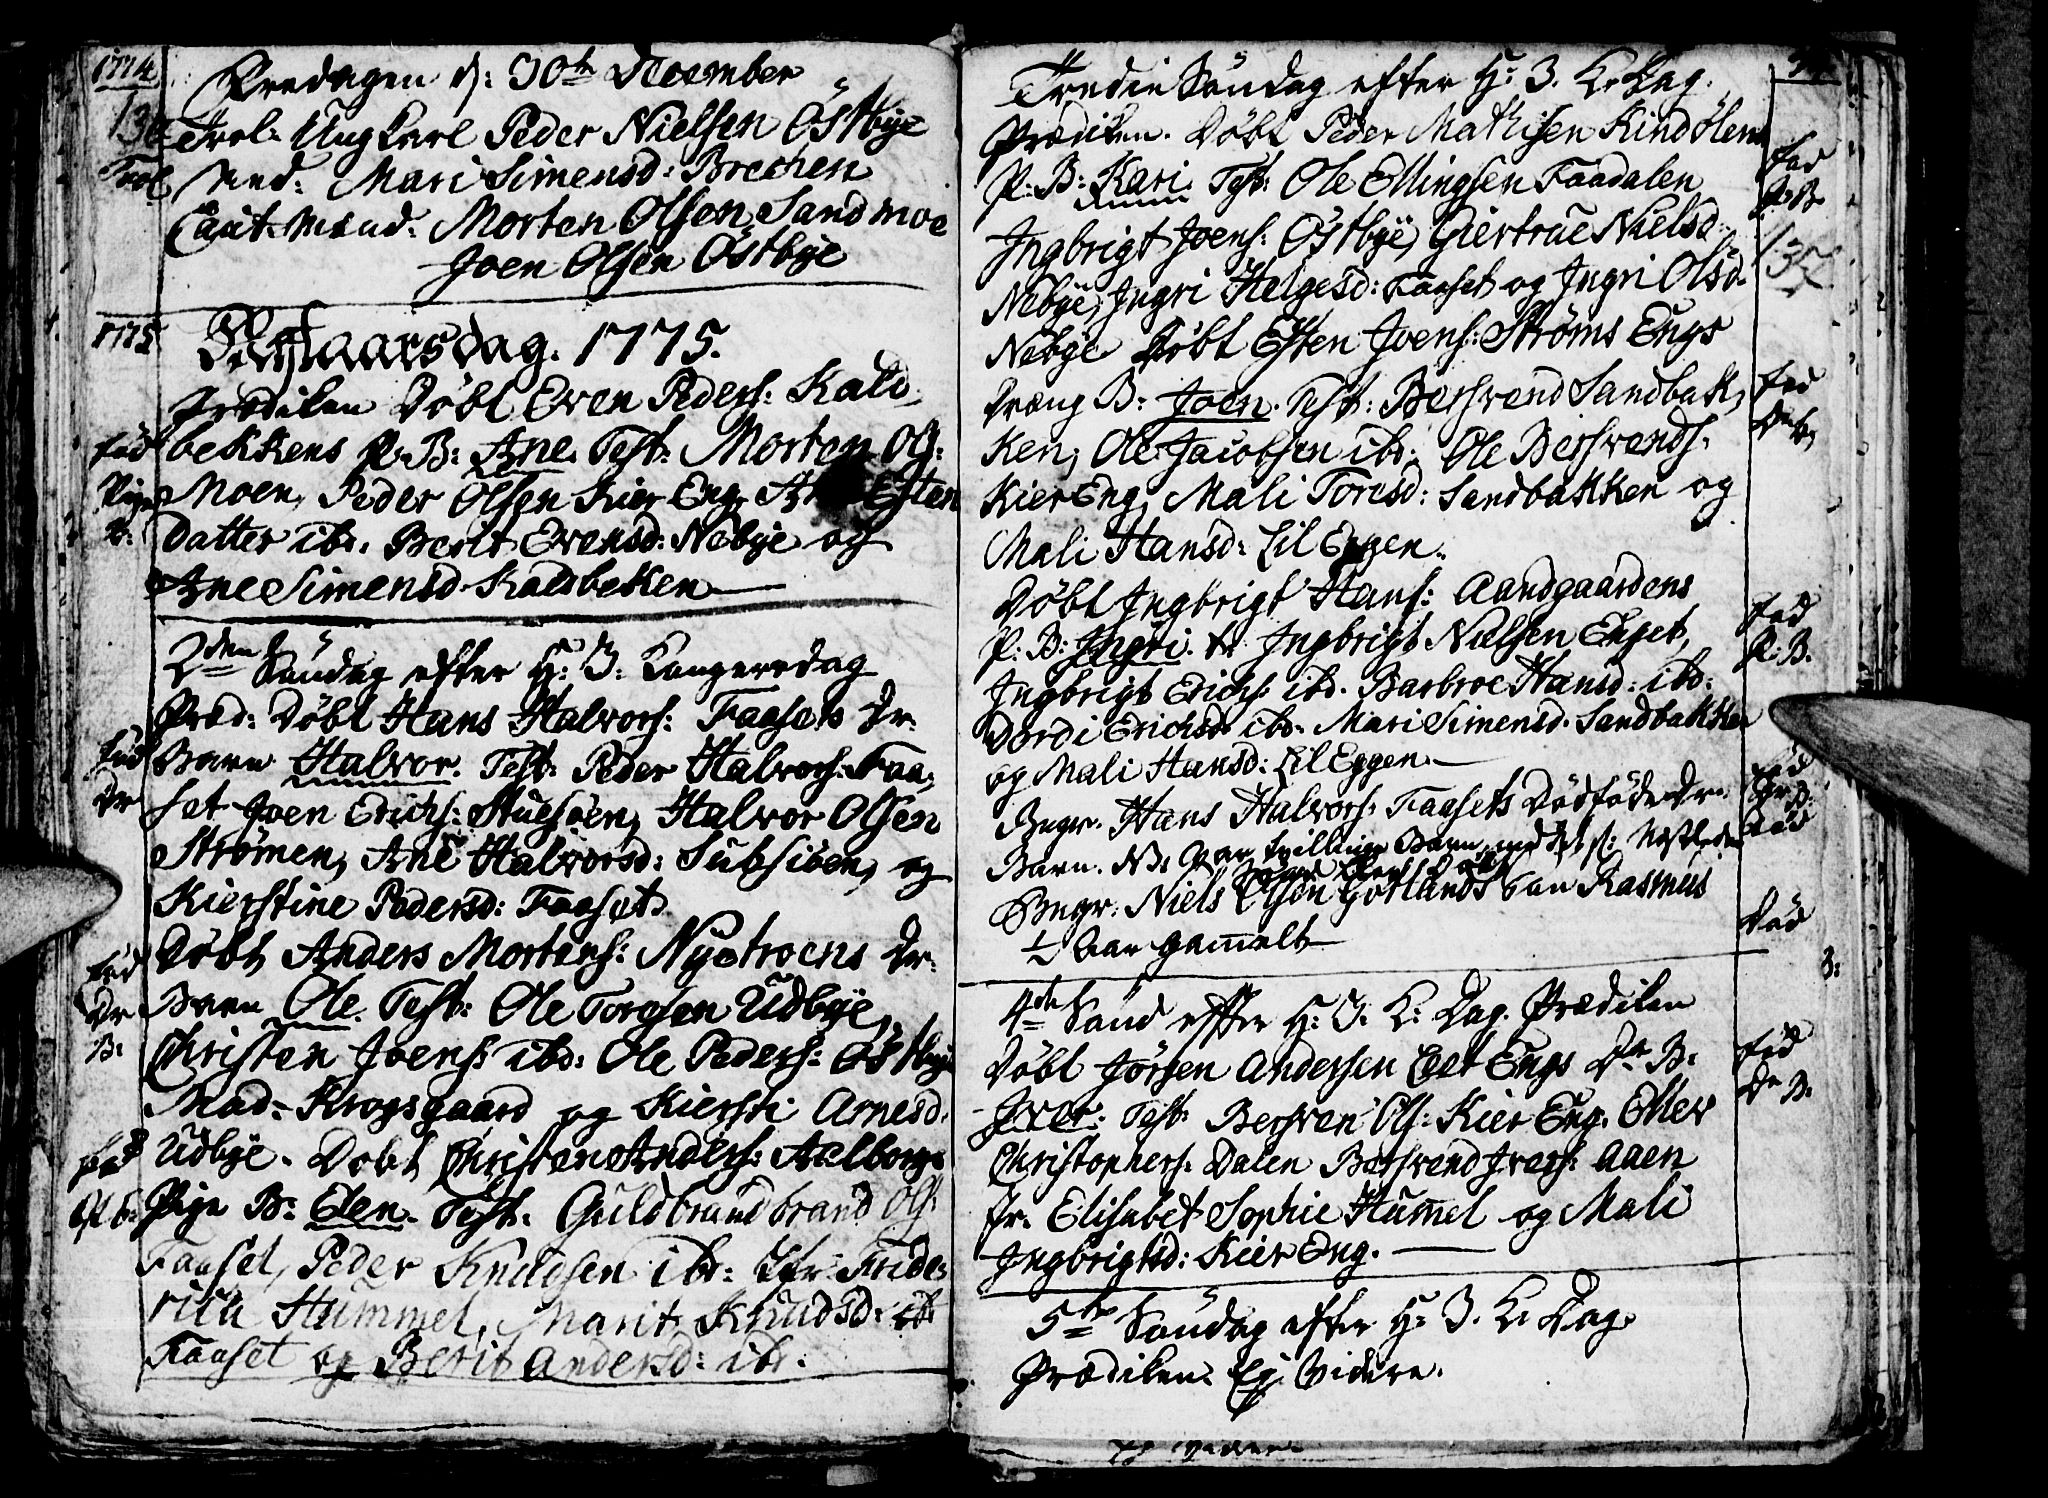 1774
Fredagen d: 30te December
Trol: Ung Karl Peder Nielsen Östbye
Trol
Med: Mari Simensd: Brechen
Caut: Mænd: Morten Olsen Sandmoe
Joen Olsen Östbye
1775
Nytaarsdag. 1775.
Prædiken Döbt Even Peders: Kald
bekkens P: B: Ane. Test: Morten Ols:
Föd
Moen, Peder Olsen Kier Eng, Ane Esten
Pige
B:
datter ibd. Berit Evensd: Nebye og
Ane Simensd Kaldbekken
2den Söndag efter H: 3: Kongersdag
Præd: Döbt Hans Halvors: Faasets Dr.
Föd
Barn Halvor. Test: Peder Halvors: Faa
Dr
set Joen Erichs: Stuesöen, Halvor Olsen
Strömen, Ane Halvorsd: og
Kierstine Pedersd: Faaset.
Döbt Anders Mortens: Nystroens Dr:
Föd
Dr
Barn Ole. Test: Ole Torgsen Udbye,
B:
Christen Joens: ibd: Ole Peders: Östbye
Mad: Krogsgaard og Kiersti Arnesd:
Udbye. Döbt Christen Anders: Aalborgs
Föd
Pige B: Elen. Test: Guldbrand brand Ols:
Faaset, Peder Knudsen ibd: Jfr: Fride
rica Hummel, Marit Knudsd:
Faaset og Berit Andersd: ibd.
Tredie Söndag efter H: 3. K: Dag.
Prædiken. Döbt Peder Mathisen Kindölens
Föd
P: B: Kari. Test: Ole Ellingsen Faadalen
P: B:
Ingbrigt Joens: Östbye, Giertrue Nielsd:
Nebye, Ingri Helgesd: Faaset og Ingri Olsd.
Nebye Döbt Esten Joens: Ströms Engs
Föd
Dreng B: Joen. Test: Bersvend Sandbak
ken, Ole Jacobsen ibd: Ole Bersvends:
Kier Eng, Mali Toresd: Sandbakken og
Mali Hansd: Lil Eggen.
Döbt Ingbrigt Hans: Aandgaardens
Föd
P: B: Ingri. t: Ingbrigt Nielsen Enget,
P: B.
Ingbrigt Erichs: ibd. Barbroe Hansd: ibd:
Dordi Erichsd: ibd. Mari Simensd. Sandbakken
og Mali Hansd: Lil Eggen.
Föd
Begr. Hans Halvors: Faasets Dödföde Dr.
Dr: B:
Barn. NB: Var Tvillinge Barn, med det
Död
Begr: Niels Olsön Gotlands San Rasmus
Död
1/2 Aar gamelt
3:
4de Sönd efter H: 3. K: Dag. Prædiken
Döbt Jörgen Andersen Eet Engs Dr B.
Föd
Iver: Test: Bersven Ols: Kier Eng. Eller
Dr B:
Christophers: Dalen Bersvend Ivers: Aaen
Jr. Elisabet Sophie Hummel og Mali
Ingbrigtsd: Kier Eng.
5te Söndag efter H: 3. K: Dag.
Prædiken. Ej Videre.